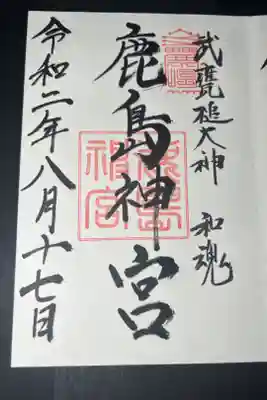 武甕槌大神 和魂
鹿島神宮
令和二年八月十七日